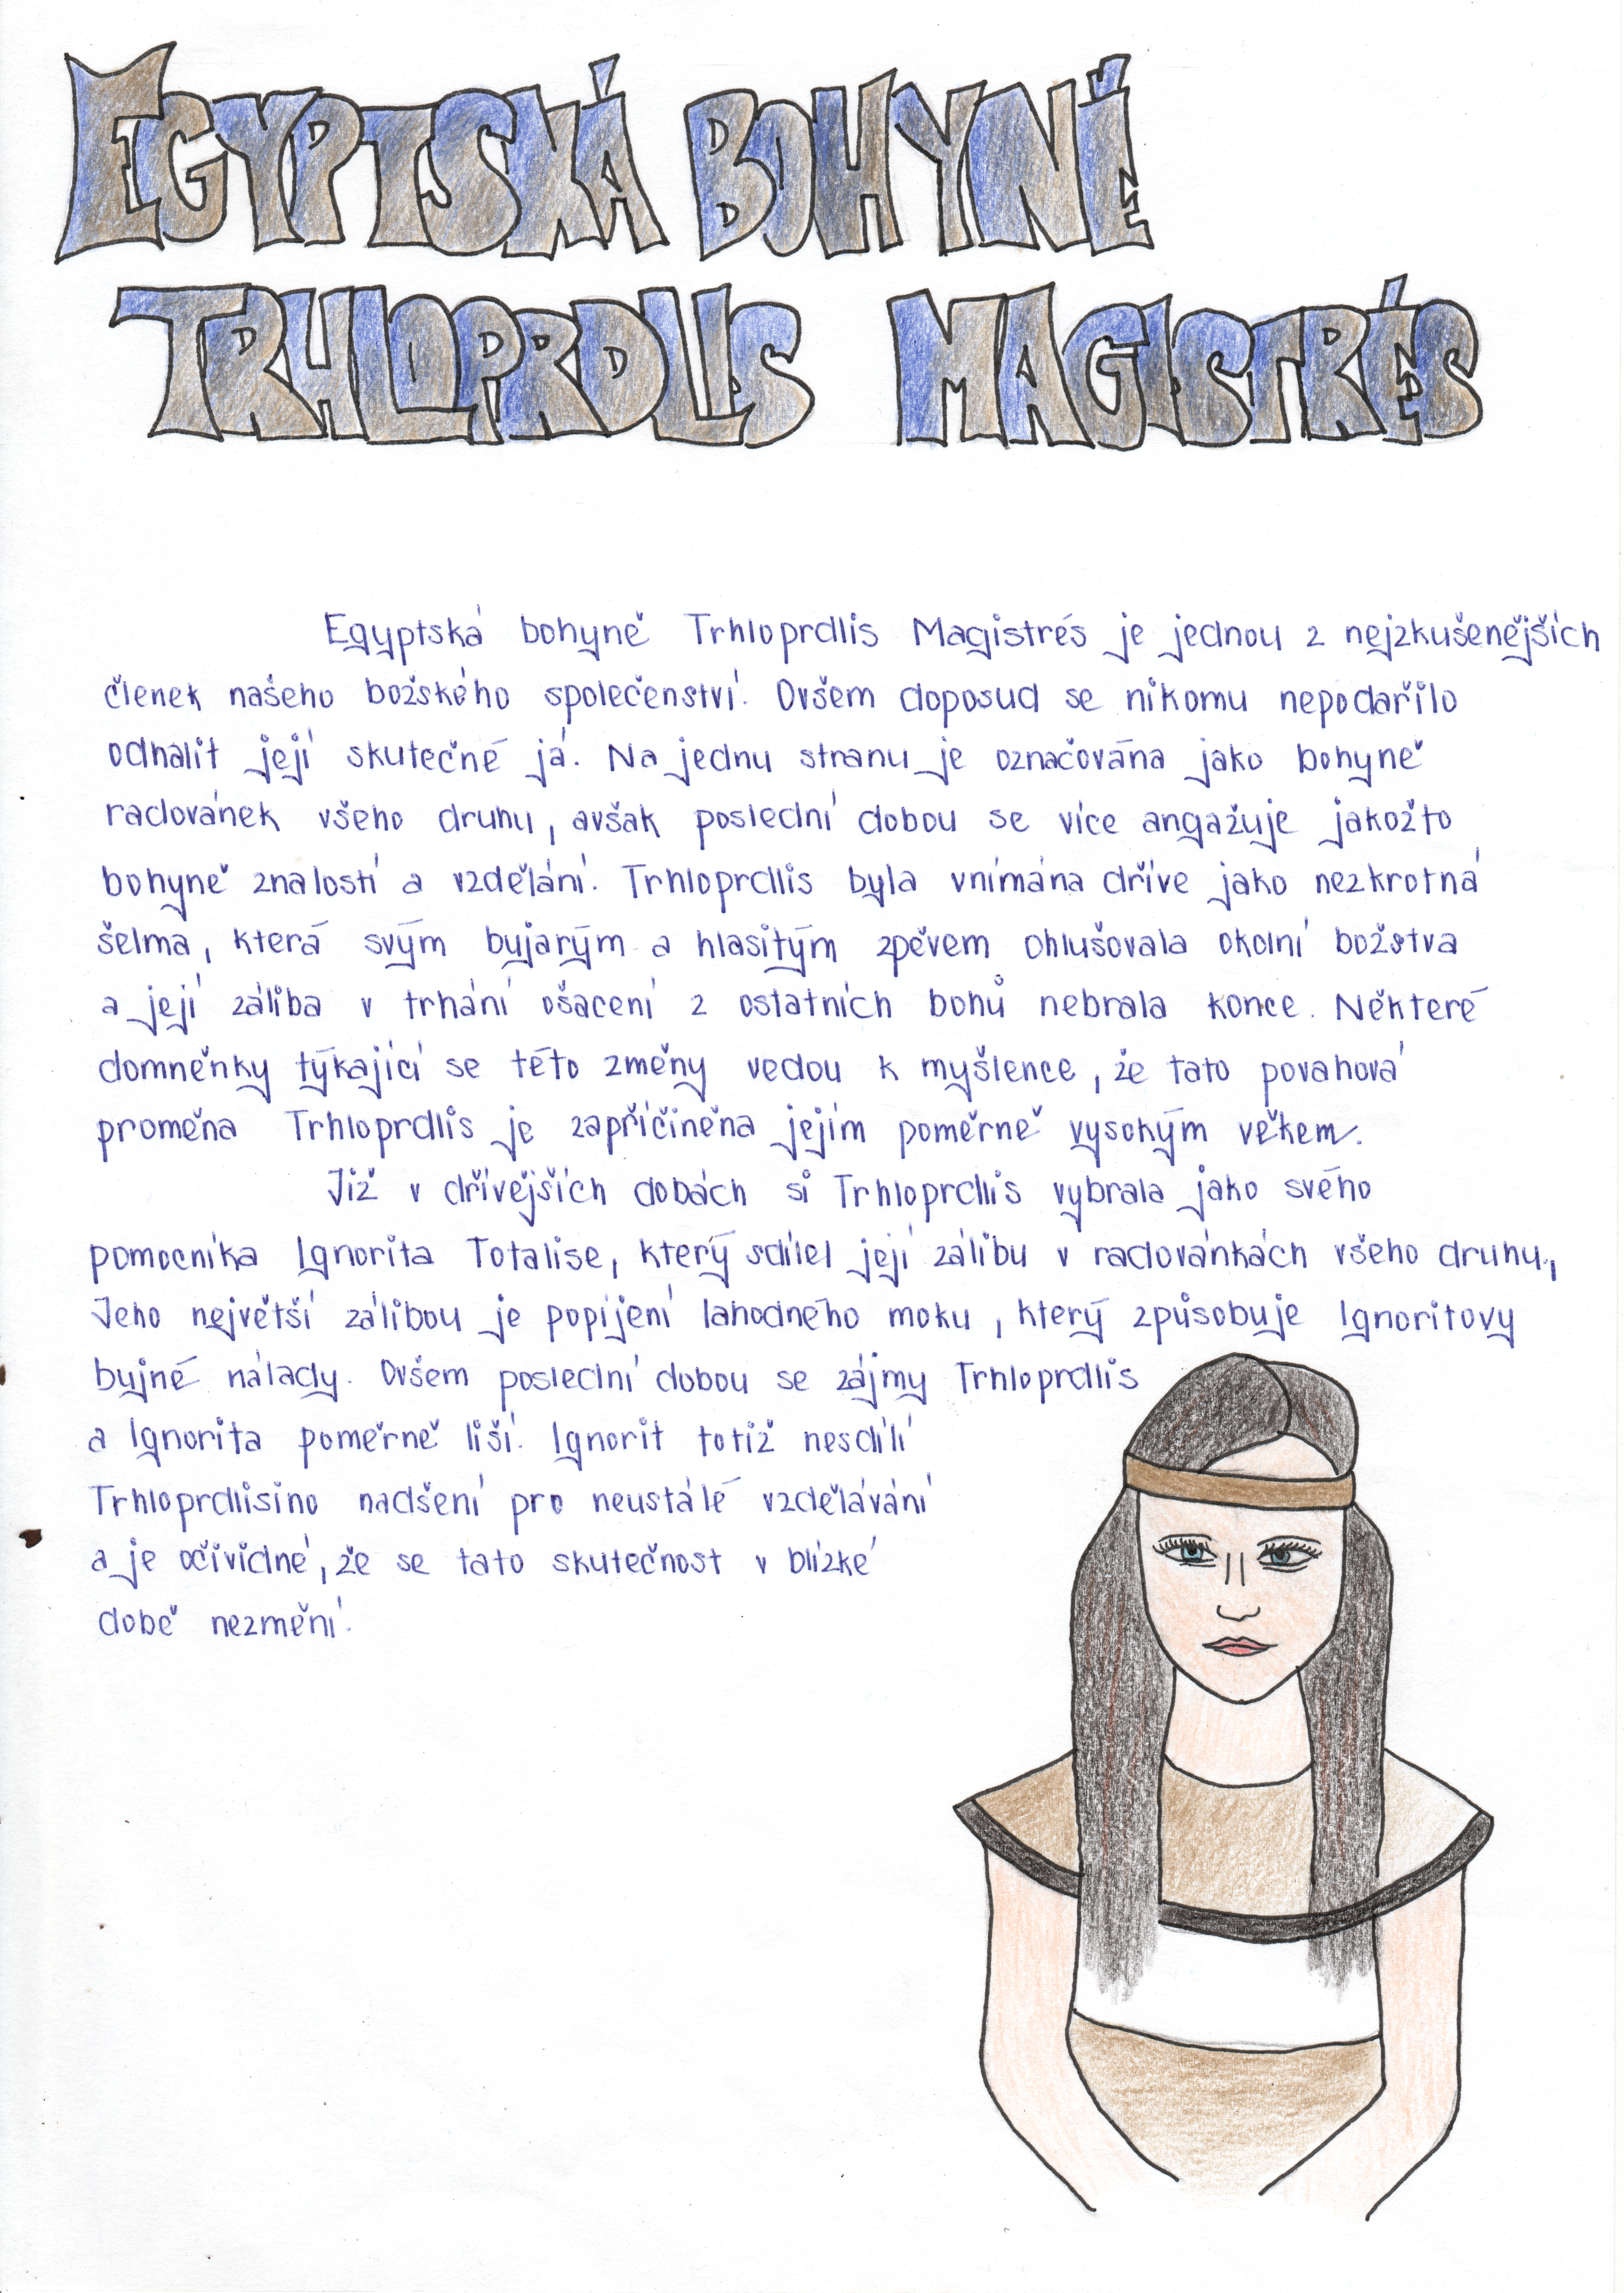 EGYPTSKÁ BOHYNĚ
TRHLOPRDLIS MAGISTRÉS
Egyptská bohyně Trhloprdlis Magistrés je jednou z nejzkušenějších
členek našeho božského společenství. Ovšem doposud se nikomu nepodařilo
odhalit její skutečné já. Na jednu stranu je označována jako bohyně
radovánek všeho druhu, avšak poslední dobou se více angažuje jakožto
bohyně znalostí a vzdělání. Trhloprdlis byla vnímána dříve jako nezkrotná
šelma, která svým bujarým a hlasitým zpěvem ohlušovala okolní božstva
a její záliba v trhání ošacení z ostatních bohů nebrala konce. Některé
domněnky týkající se této změny vedou k myšlence, že tato povahová
proměna Trhloprdlis je zapříčiněna jejím poměrně vysokým věkem.
Již v dřívějších dobách si Trhloprdlis vybrala jako svého
pomocníka Ignorita Totalise, který sdílel její zálibu v radovánkách všeho druhu,
Jeho největší zálibou je popíjení lahodného moku, který způsobuje Ignoritovy
bujné nálady. Ovšem poslední dobou se zájmy Trhloprdlis
a Ignorita poměrně liší. Ignorit totiž nesdílí
Trhloprdlisino nadšení pro neustálé vzdělávání
a je očividné, že se tato skutečnost v blízké
době nezmění.